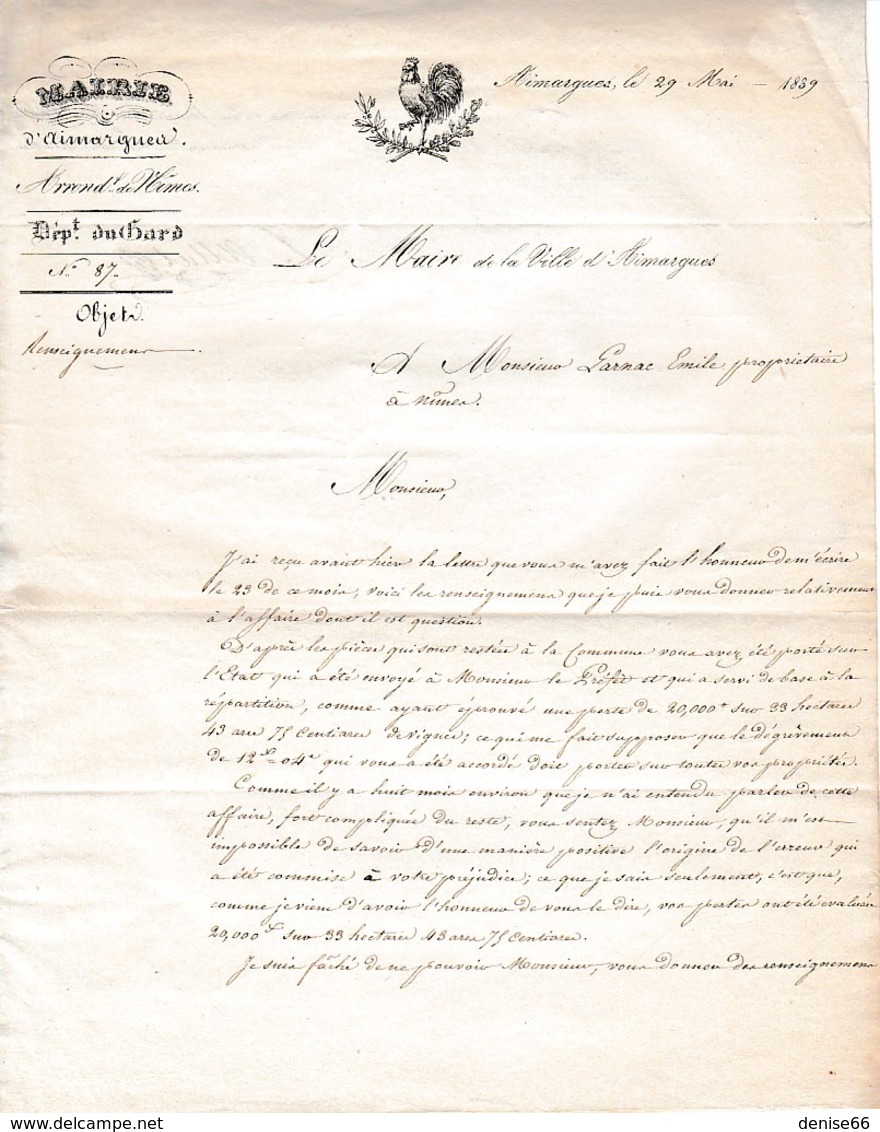 MAIRIE
d'Aimargues.
Arrond.t de Nîmes.
Dép.t du Gard
N.o 87.
Objet.
Renseignemens
Aimargues, le 29 Mai 1839
Le Maire de la Ville d'Aimargues
A Monsieur Garnac Emile propriétaire
à Nîmes.
Monsieur,
J'ai reçu avant hier la lettre que vous m'avez fait l'honneur de m'écrire
le 23 de ce mois, voici les renseignemens que je puis vous donner relativement
à l'affaire dont il est question.
D'après les pièces qui sont restées à la Commune vous avez été porté sur
l'Etat qui a été envoyé à Monsieur le Préfet et qui a servi de base à la
répartition, comme ayant éprouvé une perte de 20,000f sur 33 hectares
43 ares 75 Centiares de vignes; ce qui me fait supposer que le dégrèvement
de 12f = 04c qui vous a été accordé doit porter sur toutes vos propriétés.
Comme il y a huit mois environ que je n'ai entendu parler de cette
affaire, fort compliquée du reste, vous sentez Monsieur, qu'il m'est
impossible de savoir d'une manière positive l'origine de l'erreur qui
a été commise à votre préjudice; ce que je sais seulement, c'est que,
comme je viens d'avoir l'honneur de vous le dire, vos pertes ont été évaluées
20,000f sur 33 hectares 43 ares 75 Centiares.
Je suis fâché de ne pouvoir Monsieur, vous donner des renseignemens
denise66